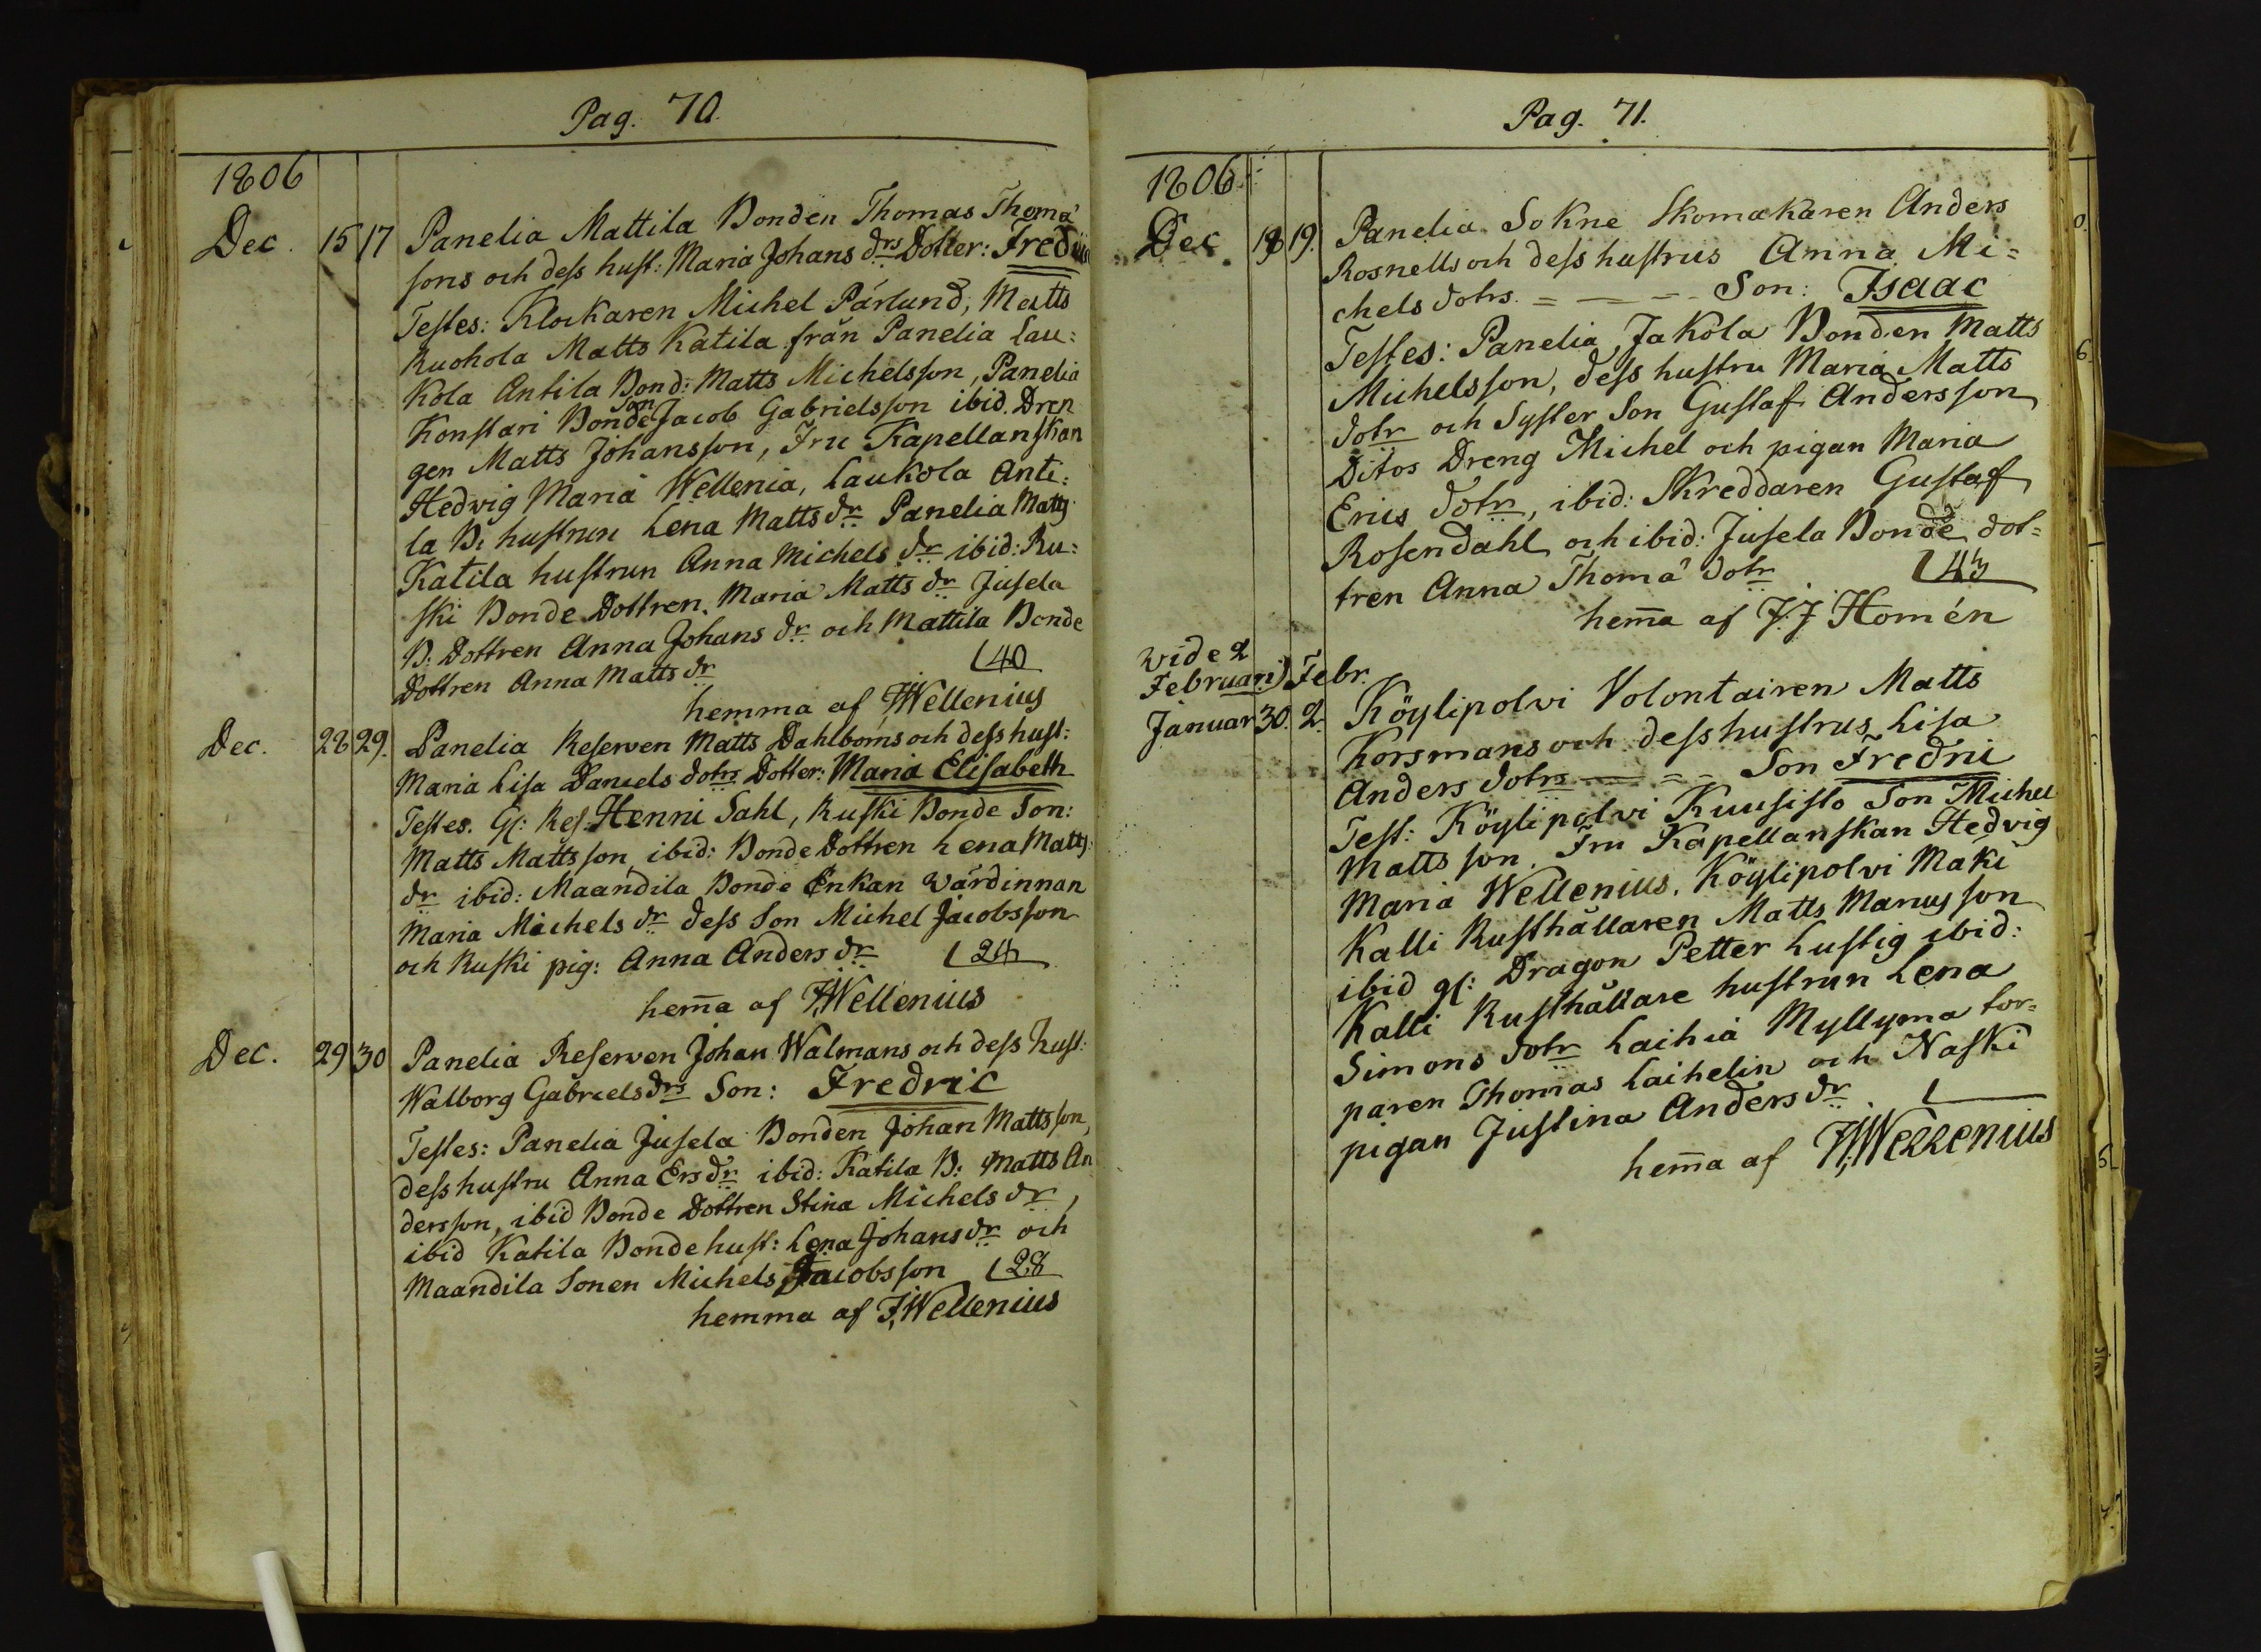 Pag. 70.
1806
Dec. 15 17 Panelia Mattila Bonden Thomas Thomæ
sons och dess hust: Maria Johans drs Dotter:
Testes: Klockaren Michel Pärlund, Matts
Ruohola Matts Katila från Panelia Lau=
kola Antila Bond: Matts Michelsson, Panelia
Konstari Bonde son Jacob Gabrielsson ibid. Dren
gen Matts Johansson, Fru Kapellanskan
Hedvig Maria Wellenia, Laukola Anti=
la B: hustrun Lena Matts dr Panelia Matts
Katila hustrun Anna Michels dr ibid: Ru=
ski Bonde Dottren Maria Matts dr Jusela
B: Dottren Anna Johans dr och Mattila Bonde
Dottren Anna Matts dr 40
hemma af J. Wellenius
Dec. 28 29. Panelia Reserven Matts Dahlboms och dess hust:
Maria Lisa Daniels dotrs Dotter: Maria Elisabeth
Testes. Gl: Res: Henric Sahl, Ruski Bonde Son:
Matts Mattsson, ibid: Bonde Dottren Lena Matts
dr ibid: Maandila Bonde Enkan Värdinnan
Maria Michels dr dess Son Michel Jacobsson
och Ruski pig: Anna Anders dr 24
hem̄a af J. Wellenius
Dec. 29 30 Panelia Reserven Johan Walmans och dess hust:
Walborg Gabriels drs Son: Fredric
Testes: Panelia Jusela Bonden Johan Mattsson,
dess hustru Anna Ers dr ibid: Katila B: Matts An
dersson, ibid Bonde Dottren Stina Michels dr,
ibid Katila Bonde hust: Lena Johans dr och
Maandila Sonen Michels Jacobsson 28
hemma af J. Wellenius
Pag. 71.
1806
Dec. 18 19. Panelia Sokne Skomakaren Anders
Rosnells och dess hustrus Anna Mi=
chels dotrs = — — - Son: Isaac
Testes: Panelia, Jakola Bonden Matts
Michelsson, dess hustru Maria Matts
dotr och Syster Son Gustaf Andersson
Ditos Dreng Michel och pigan Maria
Erics dotr, ibid: Skreddaren Gustaf
Rosendahl och ibid: Jusela Bonde dot=
tren Anna Thomæ dotr 43
hem̄a af J.J. Homén
vide 2
Februari) Febr.
Januar 30. 2. Köylipolvi Volontairen Matts
Korsmans och dess hustrus Lisa
Anders dotrs — = - Son Fredric
Test: Köylipolvi Kuusisto Son Michel
Mattsson. Fru Kapellanskan Hedvig
Maria Wellenius. Köylipolvi Maki
Kalli Rusthållaren Matts Marcusson
ibid gl: Dragon Petter Lustig ibid:
Kalli Rusthållare hustrun Lena
Simons dotr Laihia Myllyma tor=
paren Thomas Laihelin och Naski
pigan Justina Anders dr.
hem̄a af J. Wellenius